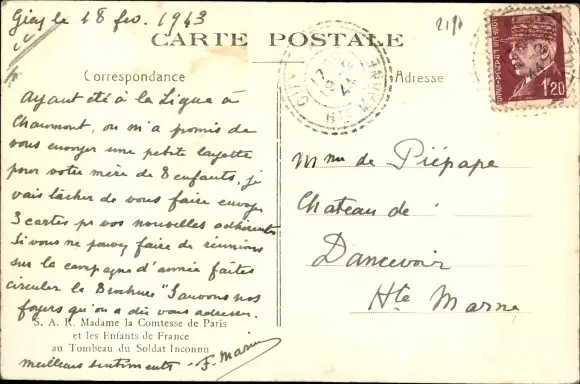 Giey le 18 fev. 1943
CARTE POSTALE
Correspondance
Adresse
Hte MARNE
1f20
Ayant été à la Ligue à
Chaumont, on m'a promis de
vous envoyer une petite layette
pour votre mère de 8 enfants, je
vais tâcher de vous faire envoyer
3 cartes pr vos nouvelles adhérentes
Si vous ne pouvez faire de réunions
sur la campagne d'année faites
circuler la Brochure "Sauvons nos
foyers qu'on a dû vous adresser.
S. A. R. Madame la Comtesse de Paris
et les Enfants de France
au Tombeau du Soldat Inconnu
meilleurs sentiments - F. Marin
Mme de Piépape
Chateau de
Dancevoir
Hte Marne